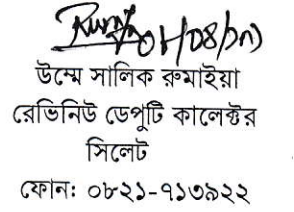 উম্মে সালিক রুমাইয়া
রেভিনিউ ডেপুটি কালেক্টর
সিলেট
ফোন: ০৮২১-৭১৩৯২২